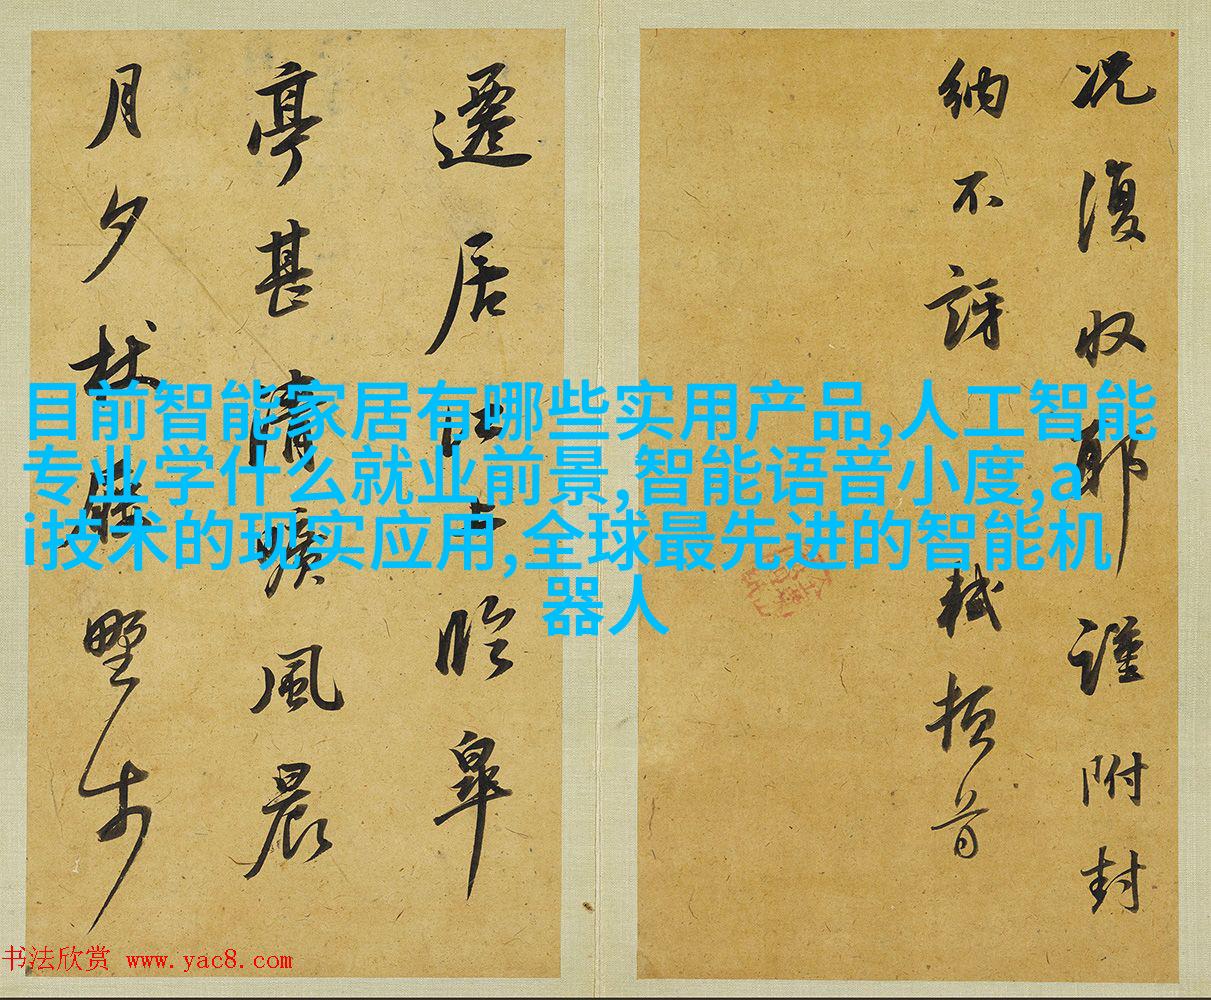 况復収耶謹附封
納不訝軾頓首
遷居江上臨皋
亭甚清曠風晨
月夕杖屨野步
目前智能家居有哪些实用产品,人工智能
专业学什么就业前景,智能语音小度,a
i技术的现实应用,全球最先进的智能机
器人
书法欣赏 www.yac8.com